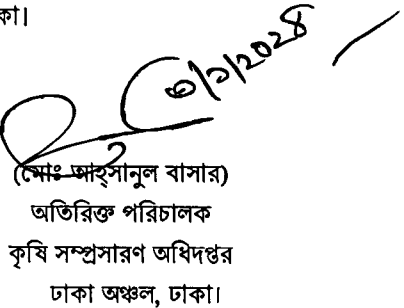 কা।
৩/১/২০২৪
(মোঃ আহ্সানুল বাসার)
অতিরিক্ত পরিচালক
কৃষি সম্প্রসারণ অধিদপ্তর
ঢাকা অঞ্চল, ঢাকা।